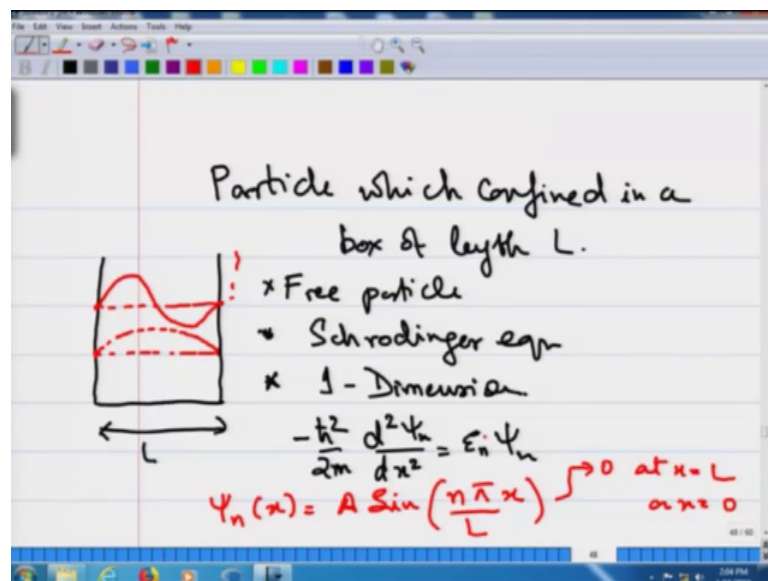 File Edit View Insert Actions Tools Help
B I
Particle which confined in a
box of length L.
× Free particle
* Schrodinger eqn
* 1 - Dimension
-ħ²/2m d²Ψₙ/dx² = εₙ Ψₙ
Ψₙ(x) = A Sin (nπx/L) → 0 at x = L
or x = 0
L
48 / 60
48
2:04 PM